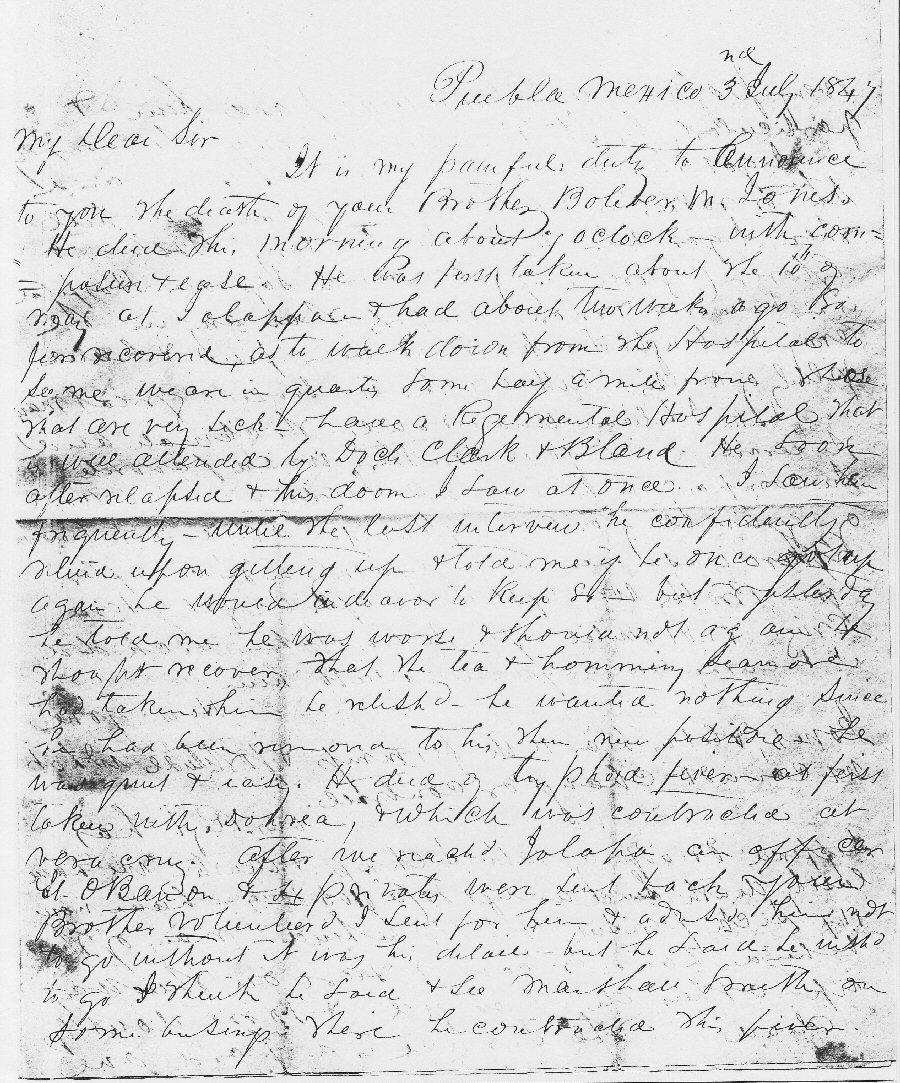 nd
Puebla Mexico 3 July 1847
My Dear Sir
It is my painful duty to Announce
to you the death of your Brother Boliver M. Jones.
He died this morning about 9 oclock - with com=
= posure & ease. He was first taken about the 10th of
may at Jalappa & had about two weeks ago so
far recovered, as to walk down from the Hospital to
see me we are in quarters some half a mile from those
that are very sick - have a Regimental Hospital that
is well attended by Docts Clark & Bland. He soon
after relapsed & his doom I saw at once. I saw him
frequently - until the last interview he confidently
relied upon getting up & told me if he once got up
again he would endeavor to keep so - but yesterday
he told me he was worse & should not again he
thought recover, that the tea & homminy
had taken him he relish'd - he wanted nothing since
he had been removed to his then new position. He
was quiet & easy. He died of typhoid fever - at first
taken with Diorrea, & which was contracted at
vera cruz. After we reach'd Jalapa an officer
Lt OBannon & six privates were sent back your
Brother Volunteerd I sent for him & advised him not
to go without it was his detail - but he said he wish'd
to go I think he said & see Marshall Smith on
some business there he contracted this fever.